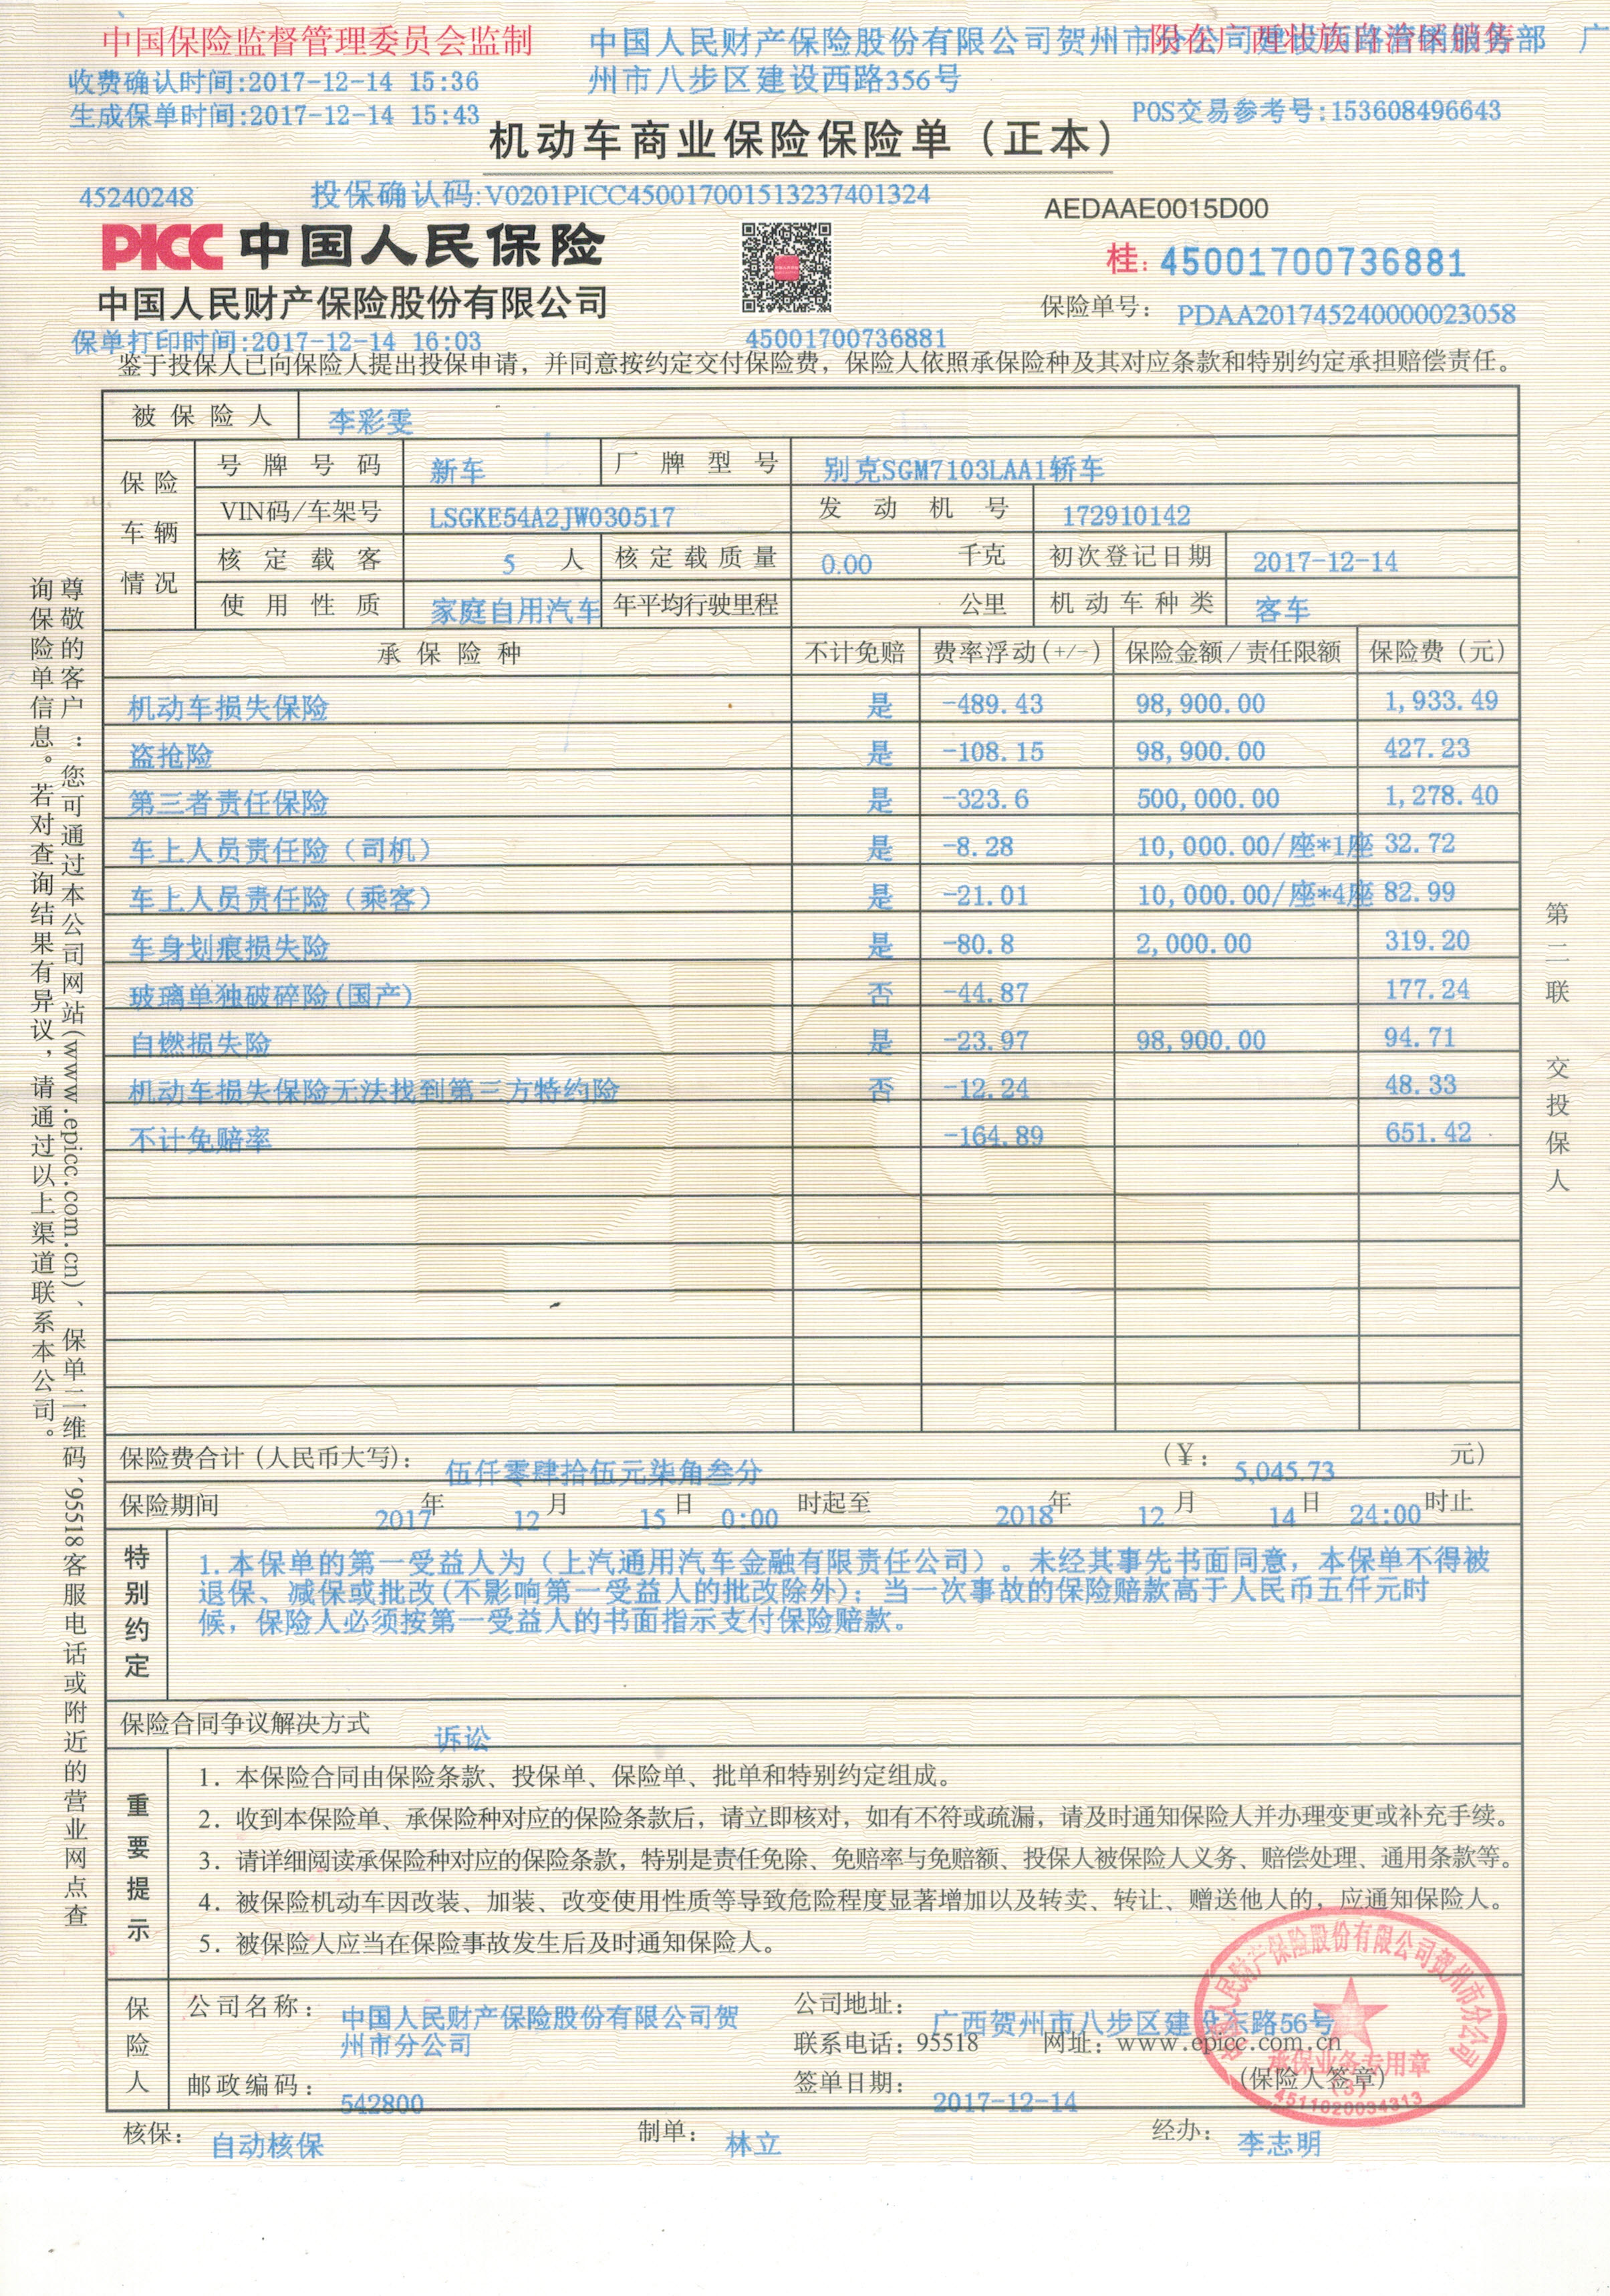 中国保险监督管理委员会监制
限在广西壮族自治区销售
中国人民财产保险股份有限公司贺州市分公司建设西路营销服务部 广
州市八步区建设西路356号
收费确认时间:2017-12-14 15:36
生成保单时间:2017-12-14 15:43
POS交易参考号:153608496643
机动车商业保险保险单（正本）
45240248
投保确认码:V0201PICC450017001513237401324
AEDAAE0015D00
PICC 中国人民保险
桂：45001700736881
中国人民财产保险股份有限公司
保险单号： PDAA201745240000023058
保单打印时间:2017-12-14 16:03
45001700736881
鉴于投保人已向保险人提出投保申请，并同意按约定交付保险费，保险人依照承保险种及其对应条款和特别约定承担赔偿责任。
被保险人 李彩雯
保险车辆情况
号牌号码 新车 厂牌型号 别克SGM7103LAA1轿车
VIN码/车架号 LSGKE54A2JW030517 发动机号 172910142
核定载客 5 人 核定载质量 0.00 千克 初次登记日期 2017-12-14
使用性质 家庭自用汽车 年平均行驶里程 公里 机动车种类 客车
承保险种 不计免赔 费率浮动(+/-) 保险金额/责任限额 保险费（元）
机动车损失保险 是 -489.43 98,900.00 1,933.49
盗抢险 是 -108.15 98,900.00 427.23
第三者责任保险 是 -323.6 500,000.00 1,278.40
车上人员责任险（司机） 是 -8.28 10,000.00/座*1座 32.72
车上人员责任险（乘客） 是 -21.01 10,000.00/座*4座 82.99
车身划痕损失险 是 -80.8 2,000.00 319.20
玻璃单独破碎险(国产) 否 -44.87 177.24
自燃损失险 是 -23.97 98,900.00 94.71
机动车损失保险无法找到第三方特约险 否 -12.24 48.33
不计免赔率 -164.89 651.42
保险费合计(人民币大写)： 伍仟零肆拾伍元柒角叁分 （¥： 5,045.73 元）
保险期间 2017 年 12 月 15 日 0:00 时起至 2018 年 12 月 14 日 24:00 时止
特别约定
1.本保单的第一受益人为（上汽通用汽车金融有限责任公司）。未经其事先书面同意，本保单不得被
退保、减保或批改(不影响第一受益人的批改除外)；当一次事故的保险赔款高于人民币五仟元时
候，保险人必须按第一受益人的书面指示支付保险赔款。
保险合同争议解决方式 诉讼
重要提示
1．本保险合同由保险条款、投保单、保险单、批单和特别约定组成。
2．收到本保险单、承保险种对应的保险条款后，请立即核对，如有不符或疏漏，请及时通知保险人并办理变更或补充手续。
3．请详细阅读承保险种对应的保险条款，特别是责任免除、免赔率与免赔额、投保人被保险人义务、赔偿处理、通用条款等。
4．被保险机动车因改装、加装、改变使用性质等导致危险程度显著增加以及转卖、转让、赠送他人的，应通知保险人。
5．被保险人应当在保险事故发生后及时通知保险人。
保险人
公司名称： 中国人民财产保险股份有限公司贺
州市分公司
邮政编码： 542800
公司地址： 广西贺州市八步区建设东路56号
联系电话：95518 网址：www.epicc.com.cn
签单日期： 2017-12-14
（保险人签章）
中国人民财产保险股份有限公司贺州市分公司
承保业务专用章
(3)
4511020034313
核保： 自动核保 制单： 林立 经办： 李志明
尊敬的客户：您可通过本公司网站(www.epicc.com.cn)、保单二维码、95518客服电话或附近的营业网点查
询保险单信息。若对查询结果有异议，请通过以上渠道联系本公司。
第二联 交投保人
PICC